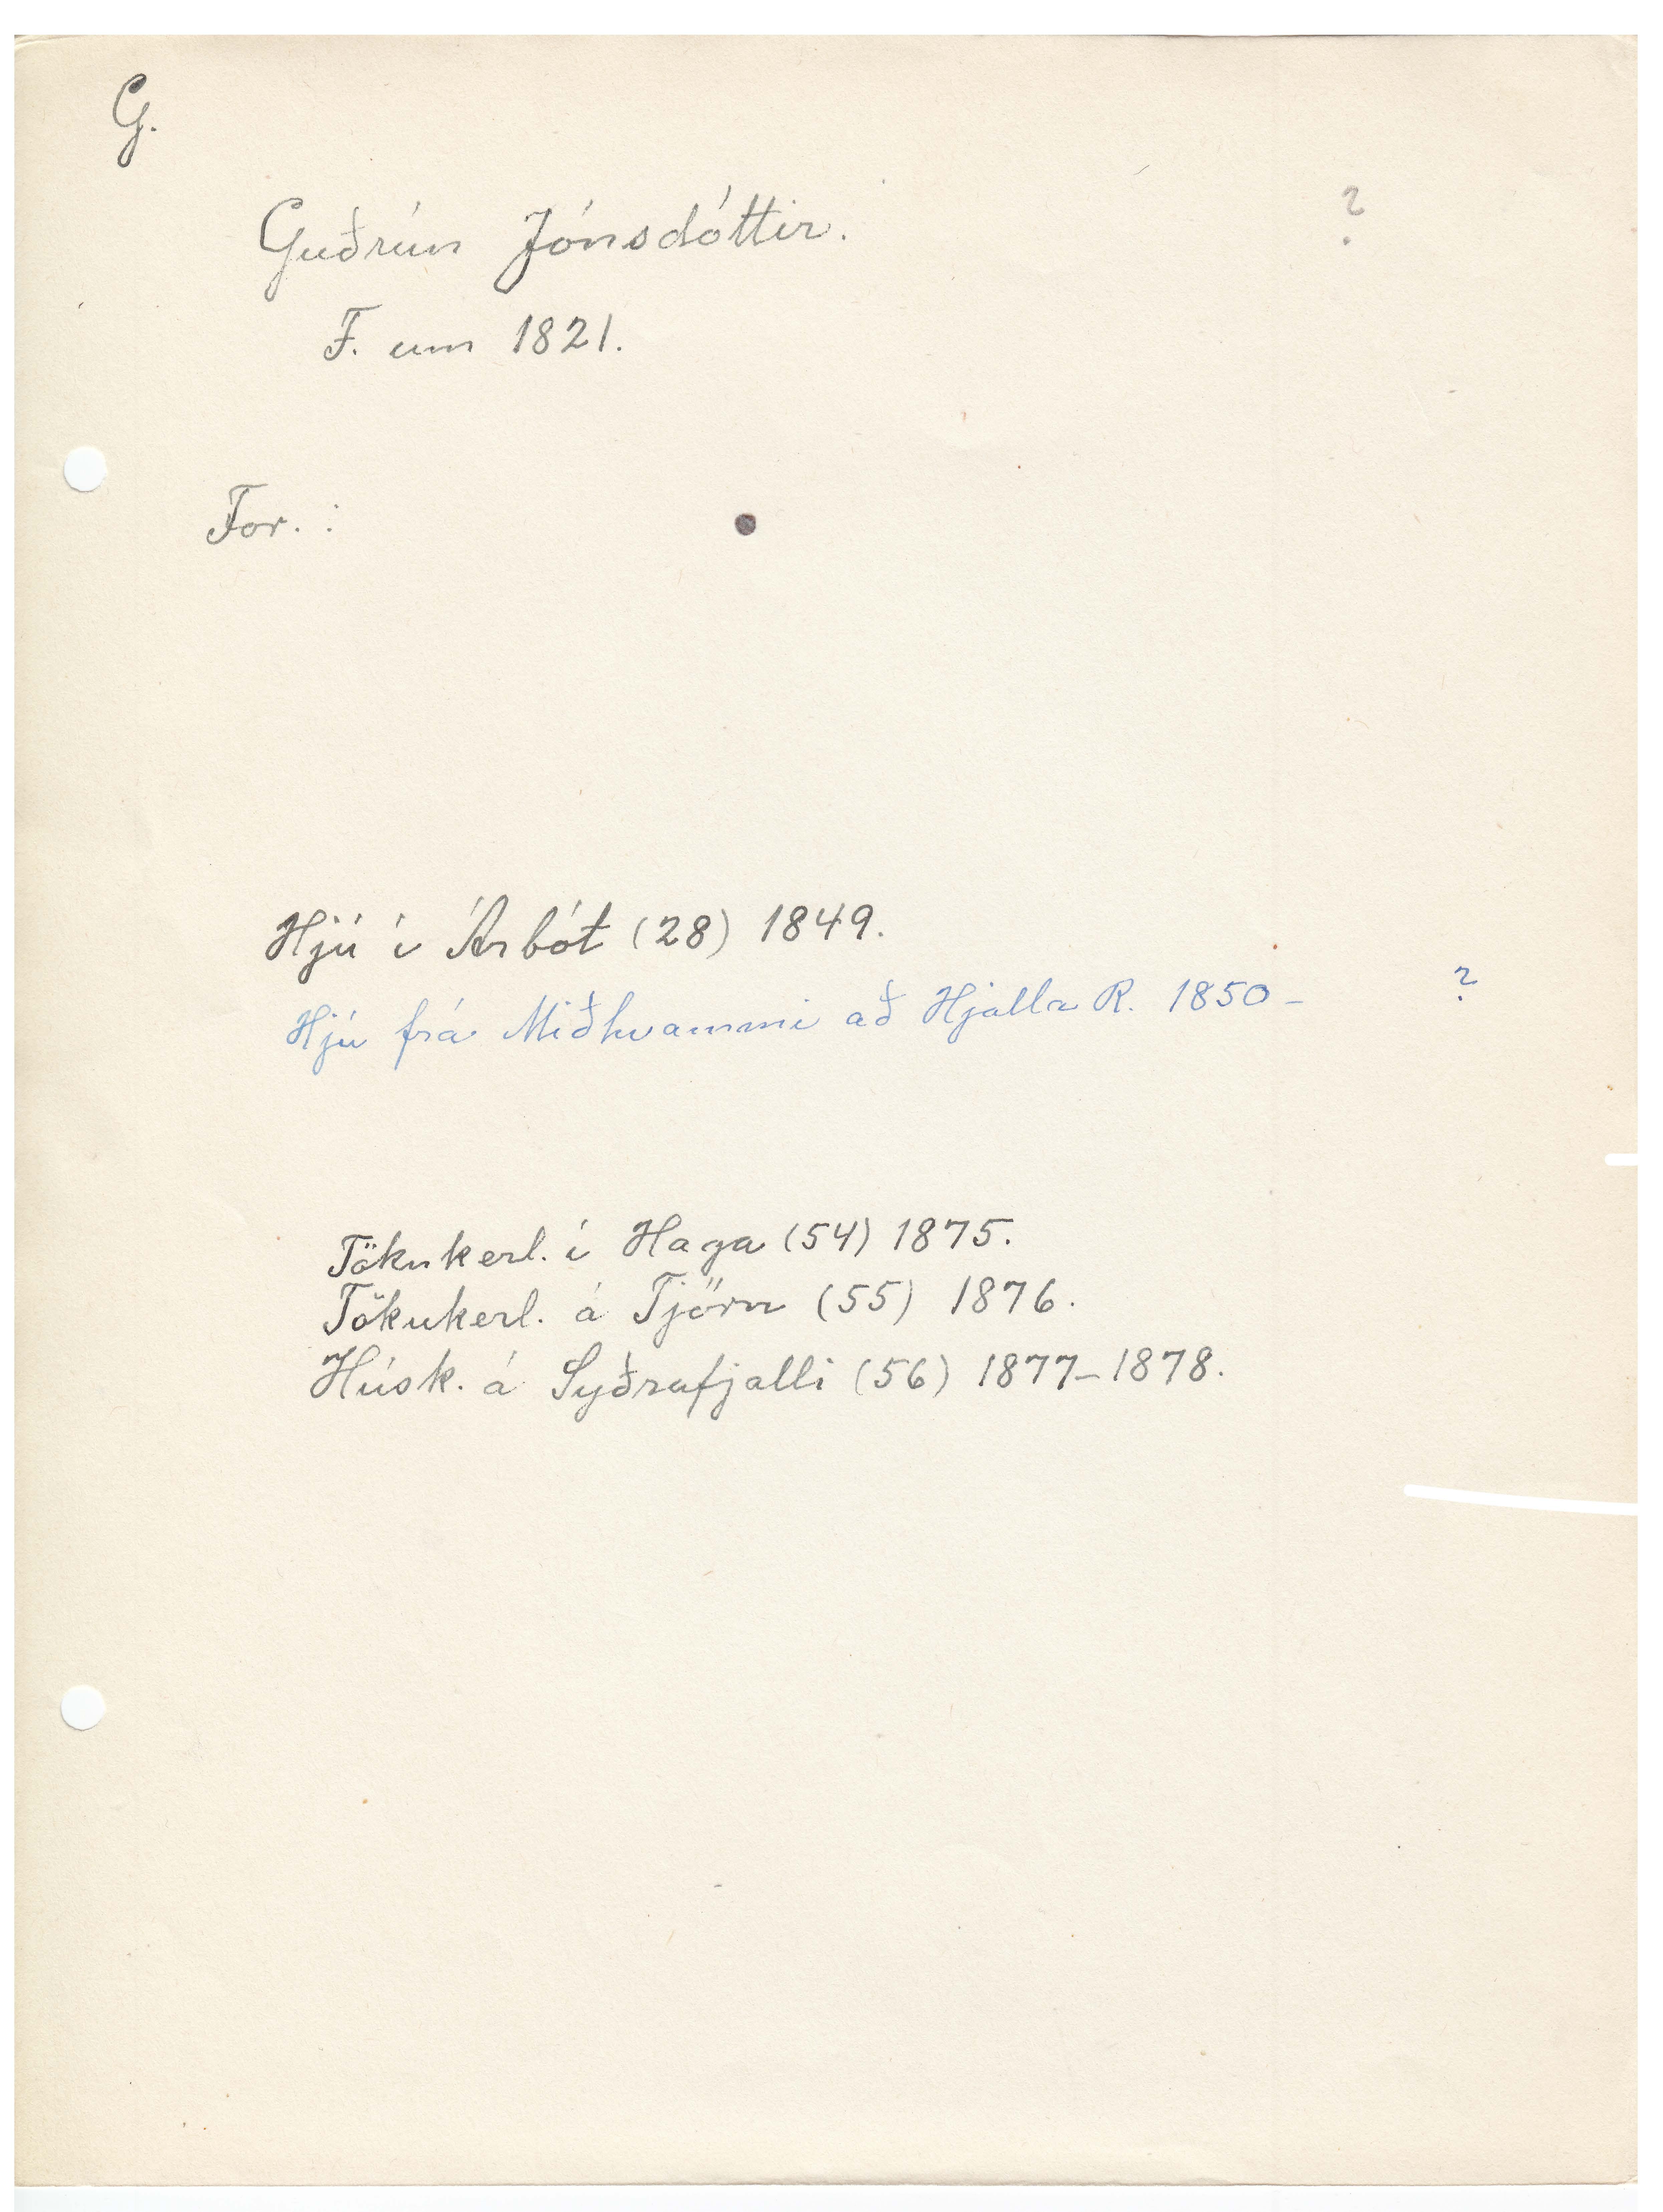 G.
Guðrún Jónsdóttir. ?
F. um 1821.
For. :
Hjú í Árbót (28) 1849.
Hjú frá Miðhvammi að Hjalla R. 1850- ?
Tökukerl. í Haga (54) 1875.
Tökukerl. á Tjörn (55) 1876.
Húsk. á Syðrafjalli (56) 1877-1878.